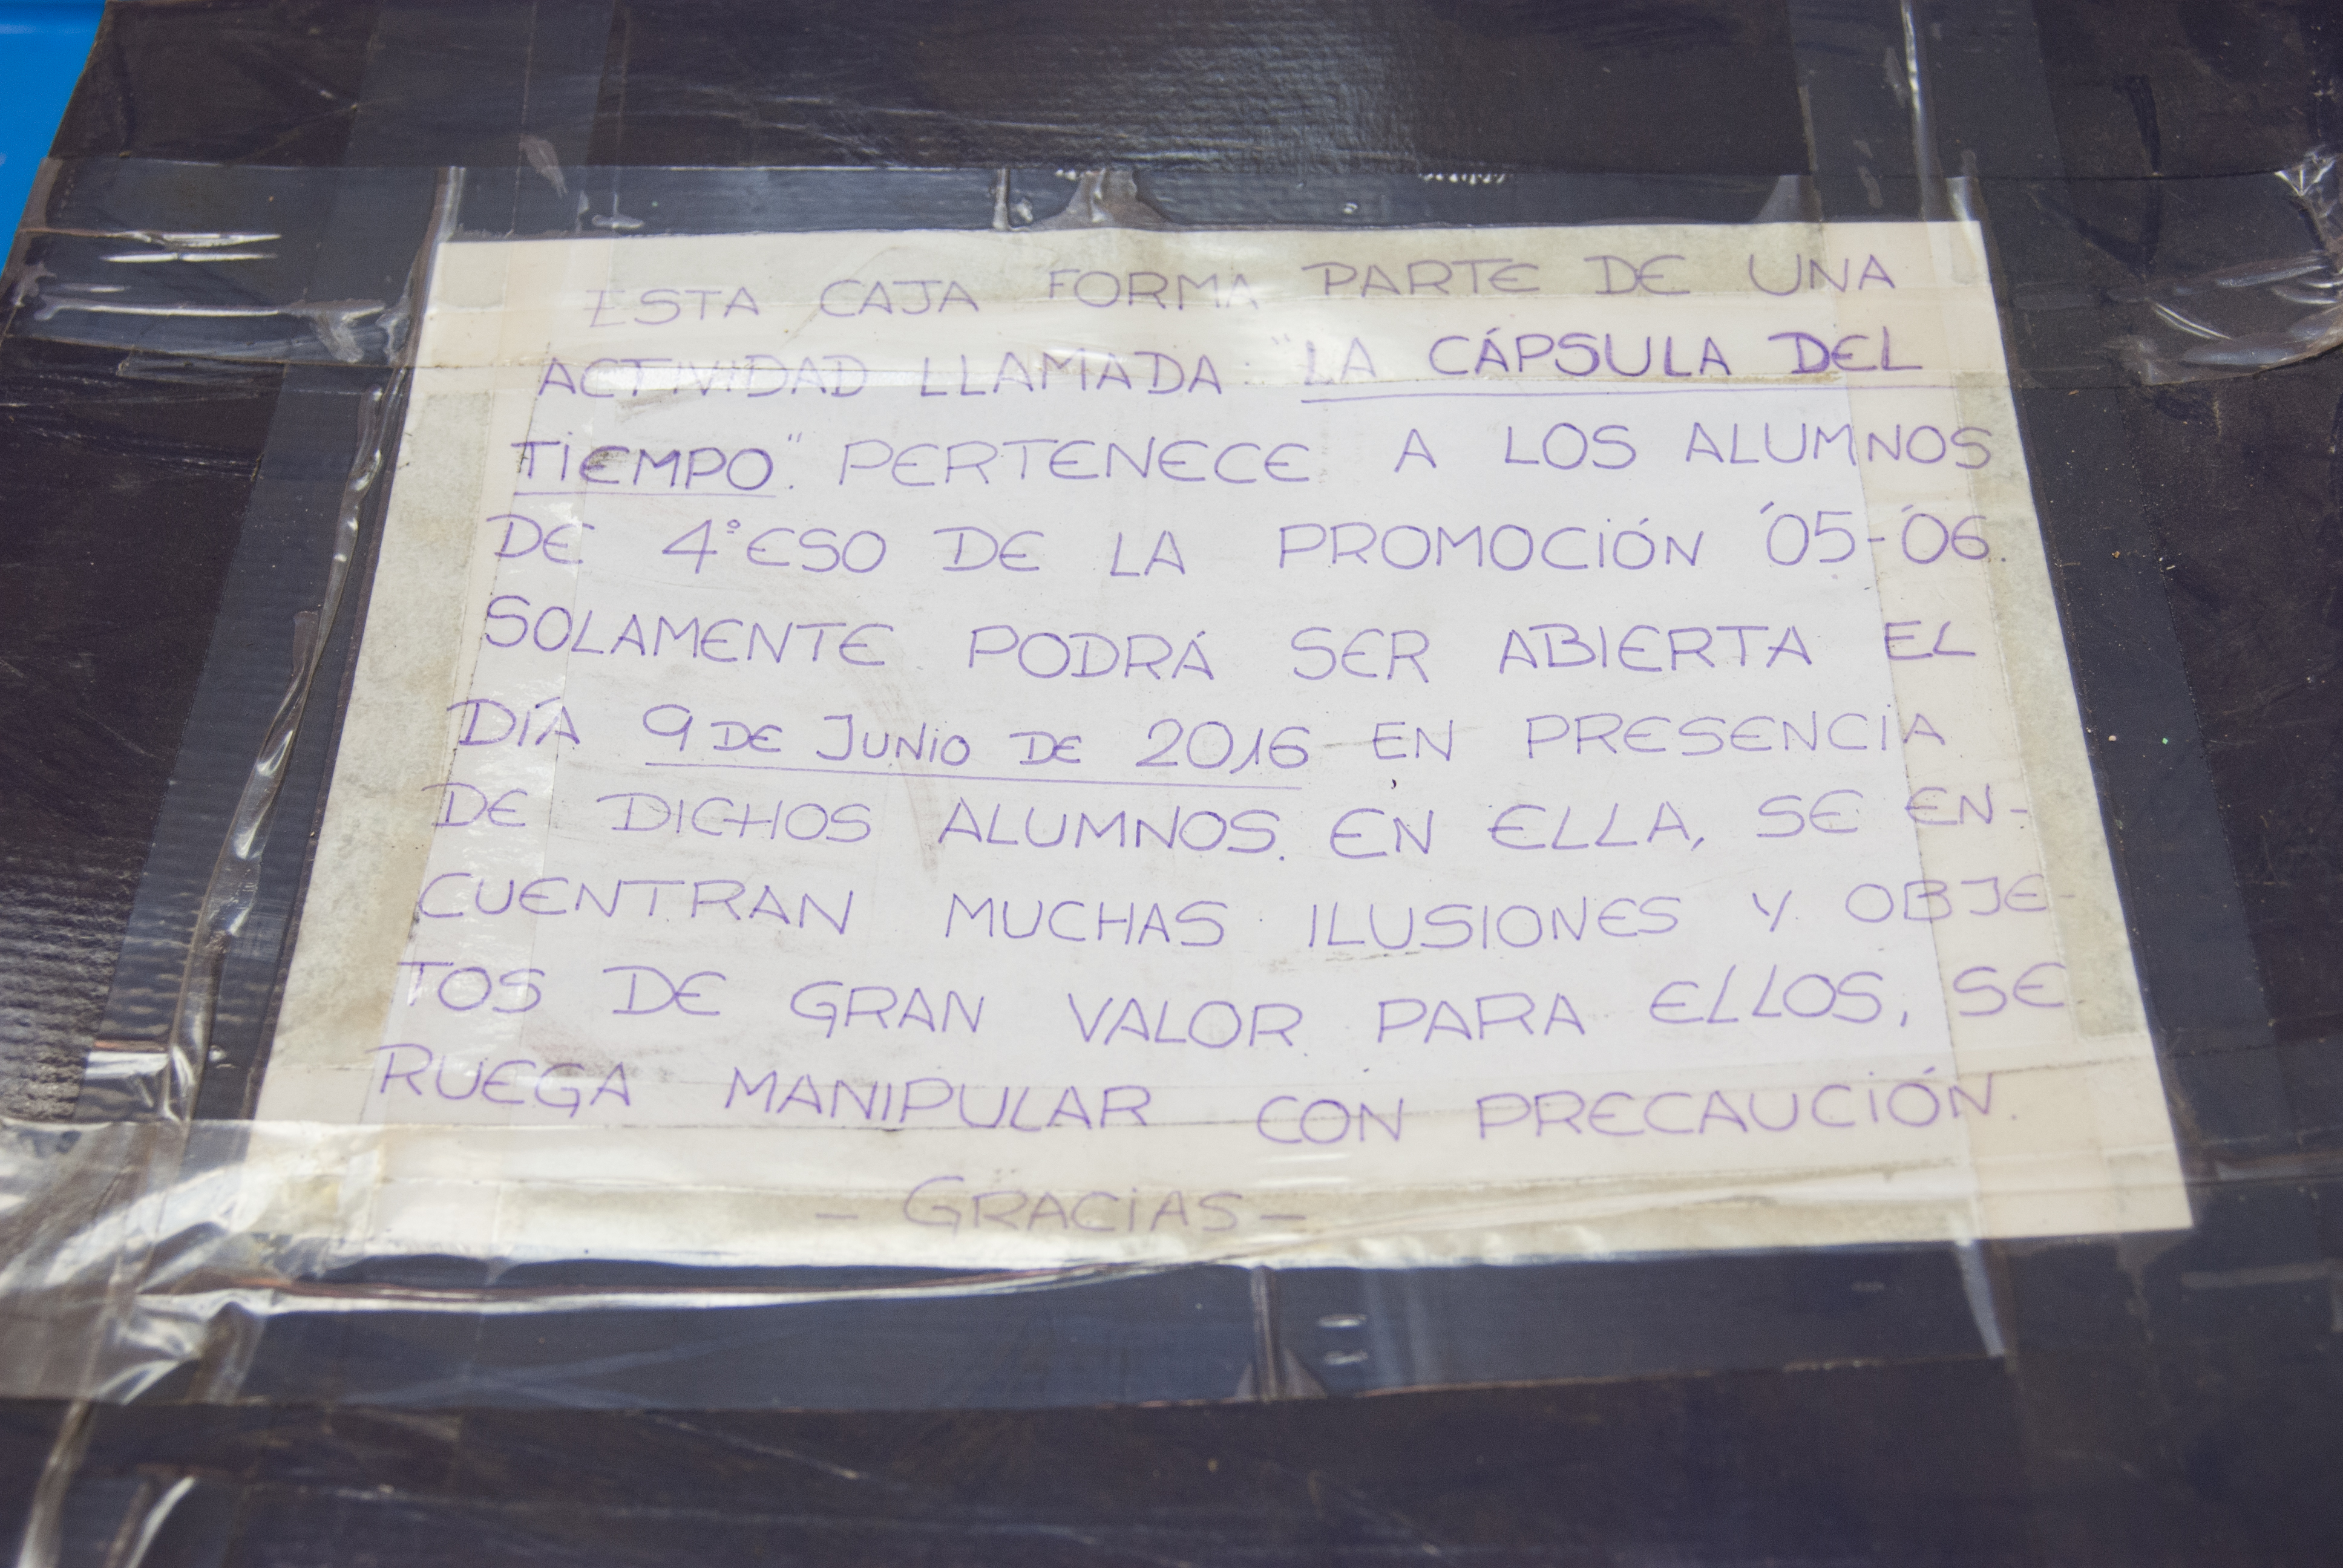 ESTA CAJA FORMA PARTE DE UNA
ACTIVIDAD LLAMADA "LA CÁPSULA DEL
TIEMPO". PERTENECE A LOS ALUMNOS
DE 4º ESO DE LA PROMOCIÓN '05-'06.
SOLAMENTE PODRÁ SER ABIERTA EL
DÍA 9 DE JUNIO DE 2016 EN PRESENCIA
DE DICHOS ALUMNOS. EN ELLA, SE EN-
CUENTRAN MUCHAS ILUSIONES Y OBJE-
TOS DE GRAN VALOR PARA ELLOS, SE
RUEGA MANIPULAR CON PRECAUCIÓN.
- GRACIAS -